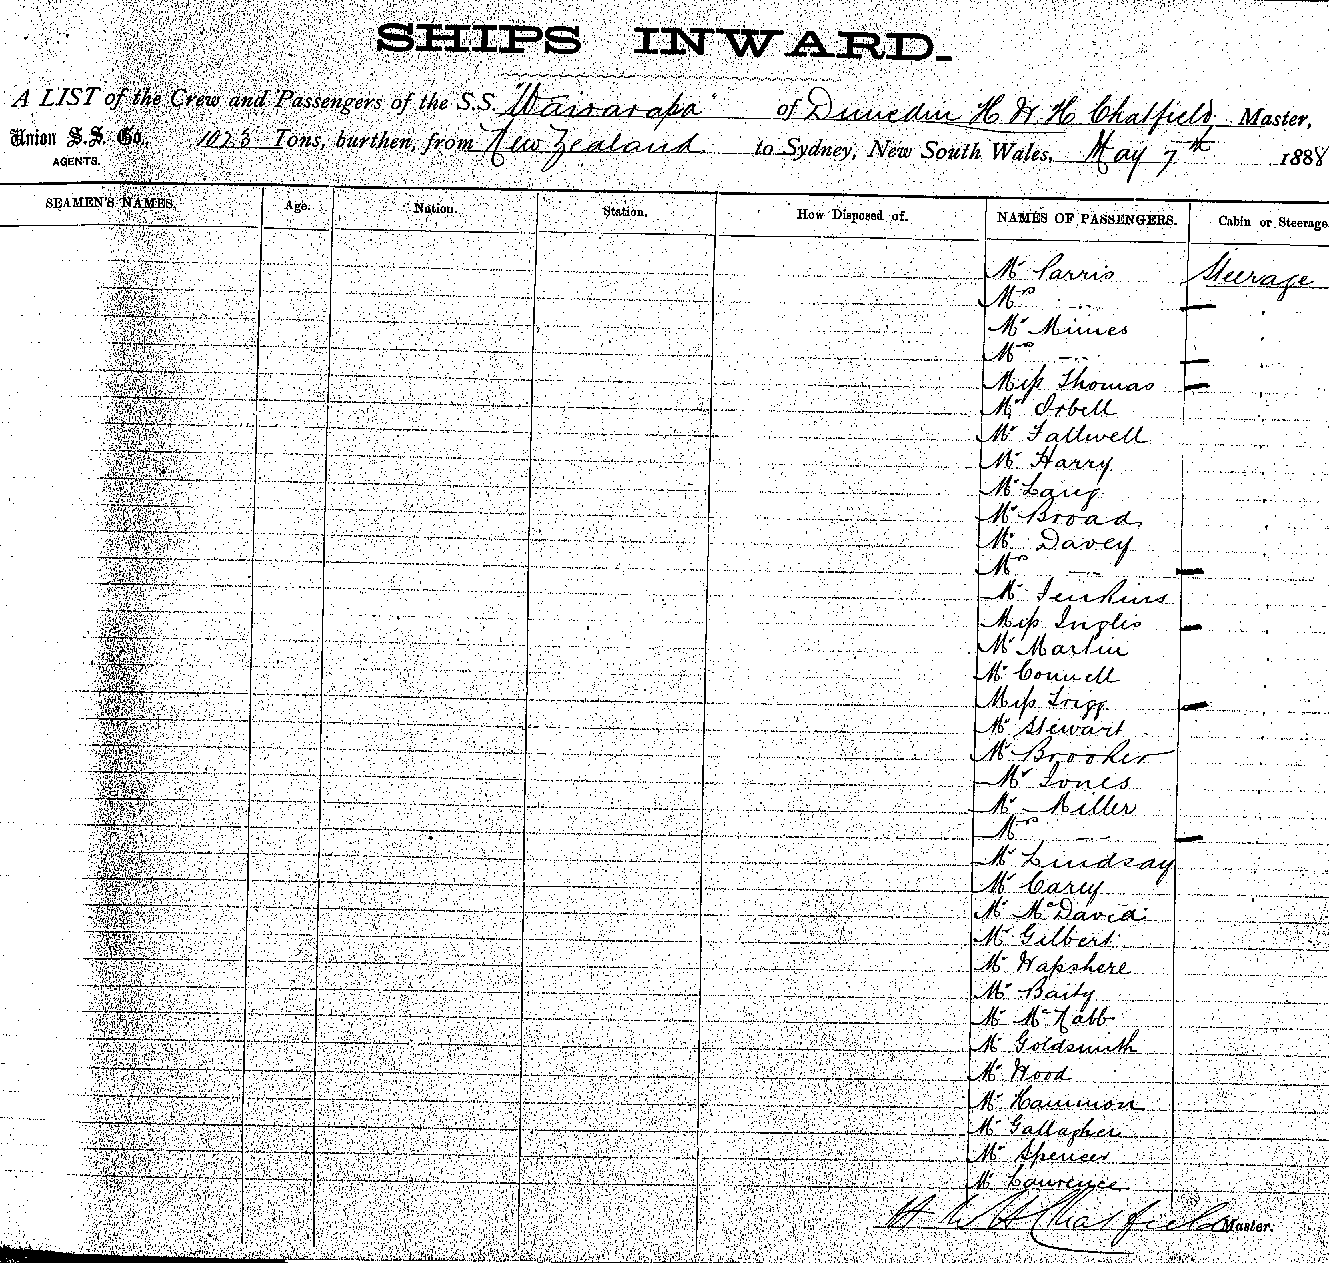 SHIPS INWARD.
A LIST of the Crew and Passengers of the S.S. "Wairarapa" of Dunedin H. W. H Chatfield, Master,
Union S.S. Co. 1023 Tons, burthen, from New Zealand to Sydney, New South Wales, May 7th 1888
AGENTS.
SEAMEN'S NAMES. Age. Nation. Station. How Disposed of. NAMES OF PASSENGERS. Cabin or Steerage
Mr Parris Steerage
Mrs -- –
Mr Mimes
Mrs -- –
Miss Thomas –
Mr Isbell
Mr Tallwell
Mr Harry
Mr Lang
Mr Broad
Mr Davey
Mrs -- –
Mr Jenkins
Miss Inglis –
Mr Martin
Mr Connell
Miss Trigg –
Mr Stewart
Mr Brooker
Mr Jones
Mr Miller
Mrs -- –
Mr Lindsay
Mr Carey
Mr McDavid
Mr Gilbert
Mr Wapshere
Mr Baity
Mr McNabb
Mr Goldsmith
Mr Wood
Mr Hammon
Mr Gallagher
Mr Spencer
Mr Lawrence
H W H Chatfield Master.